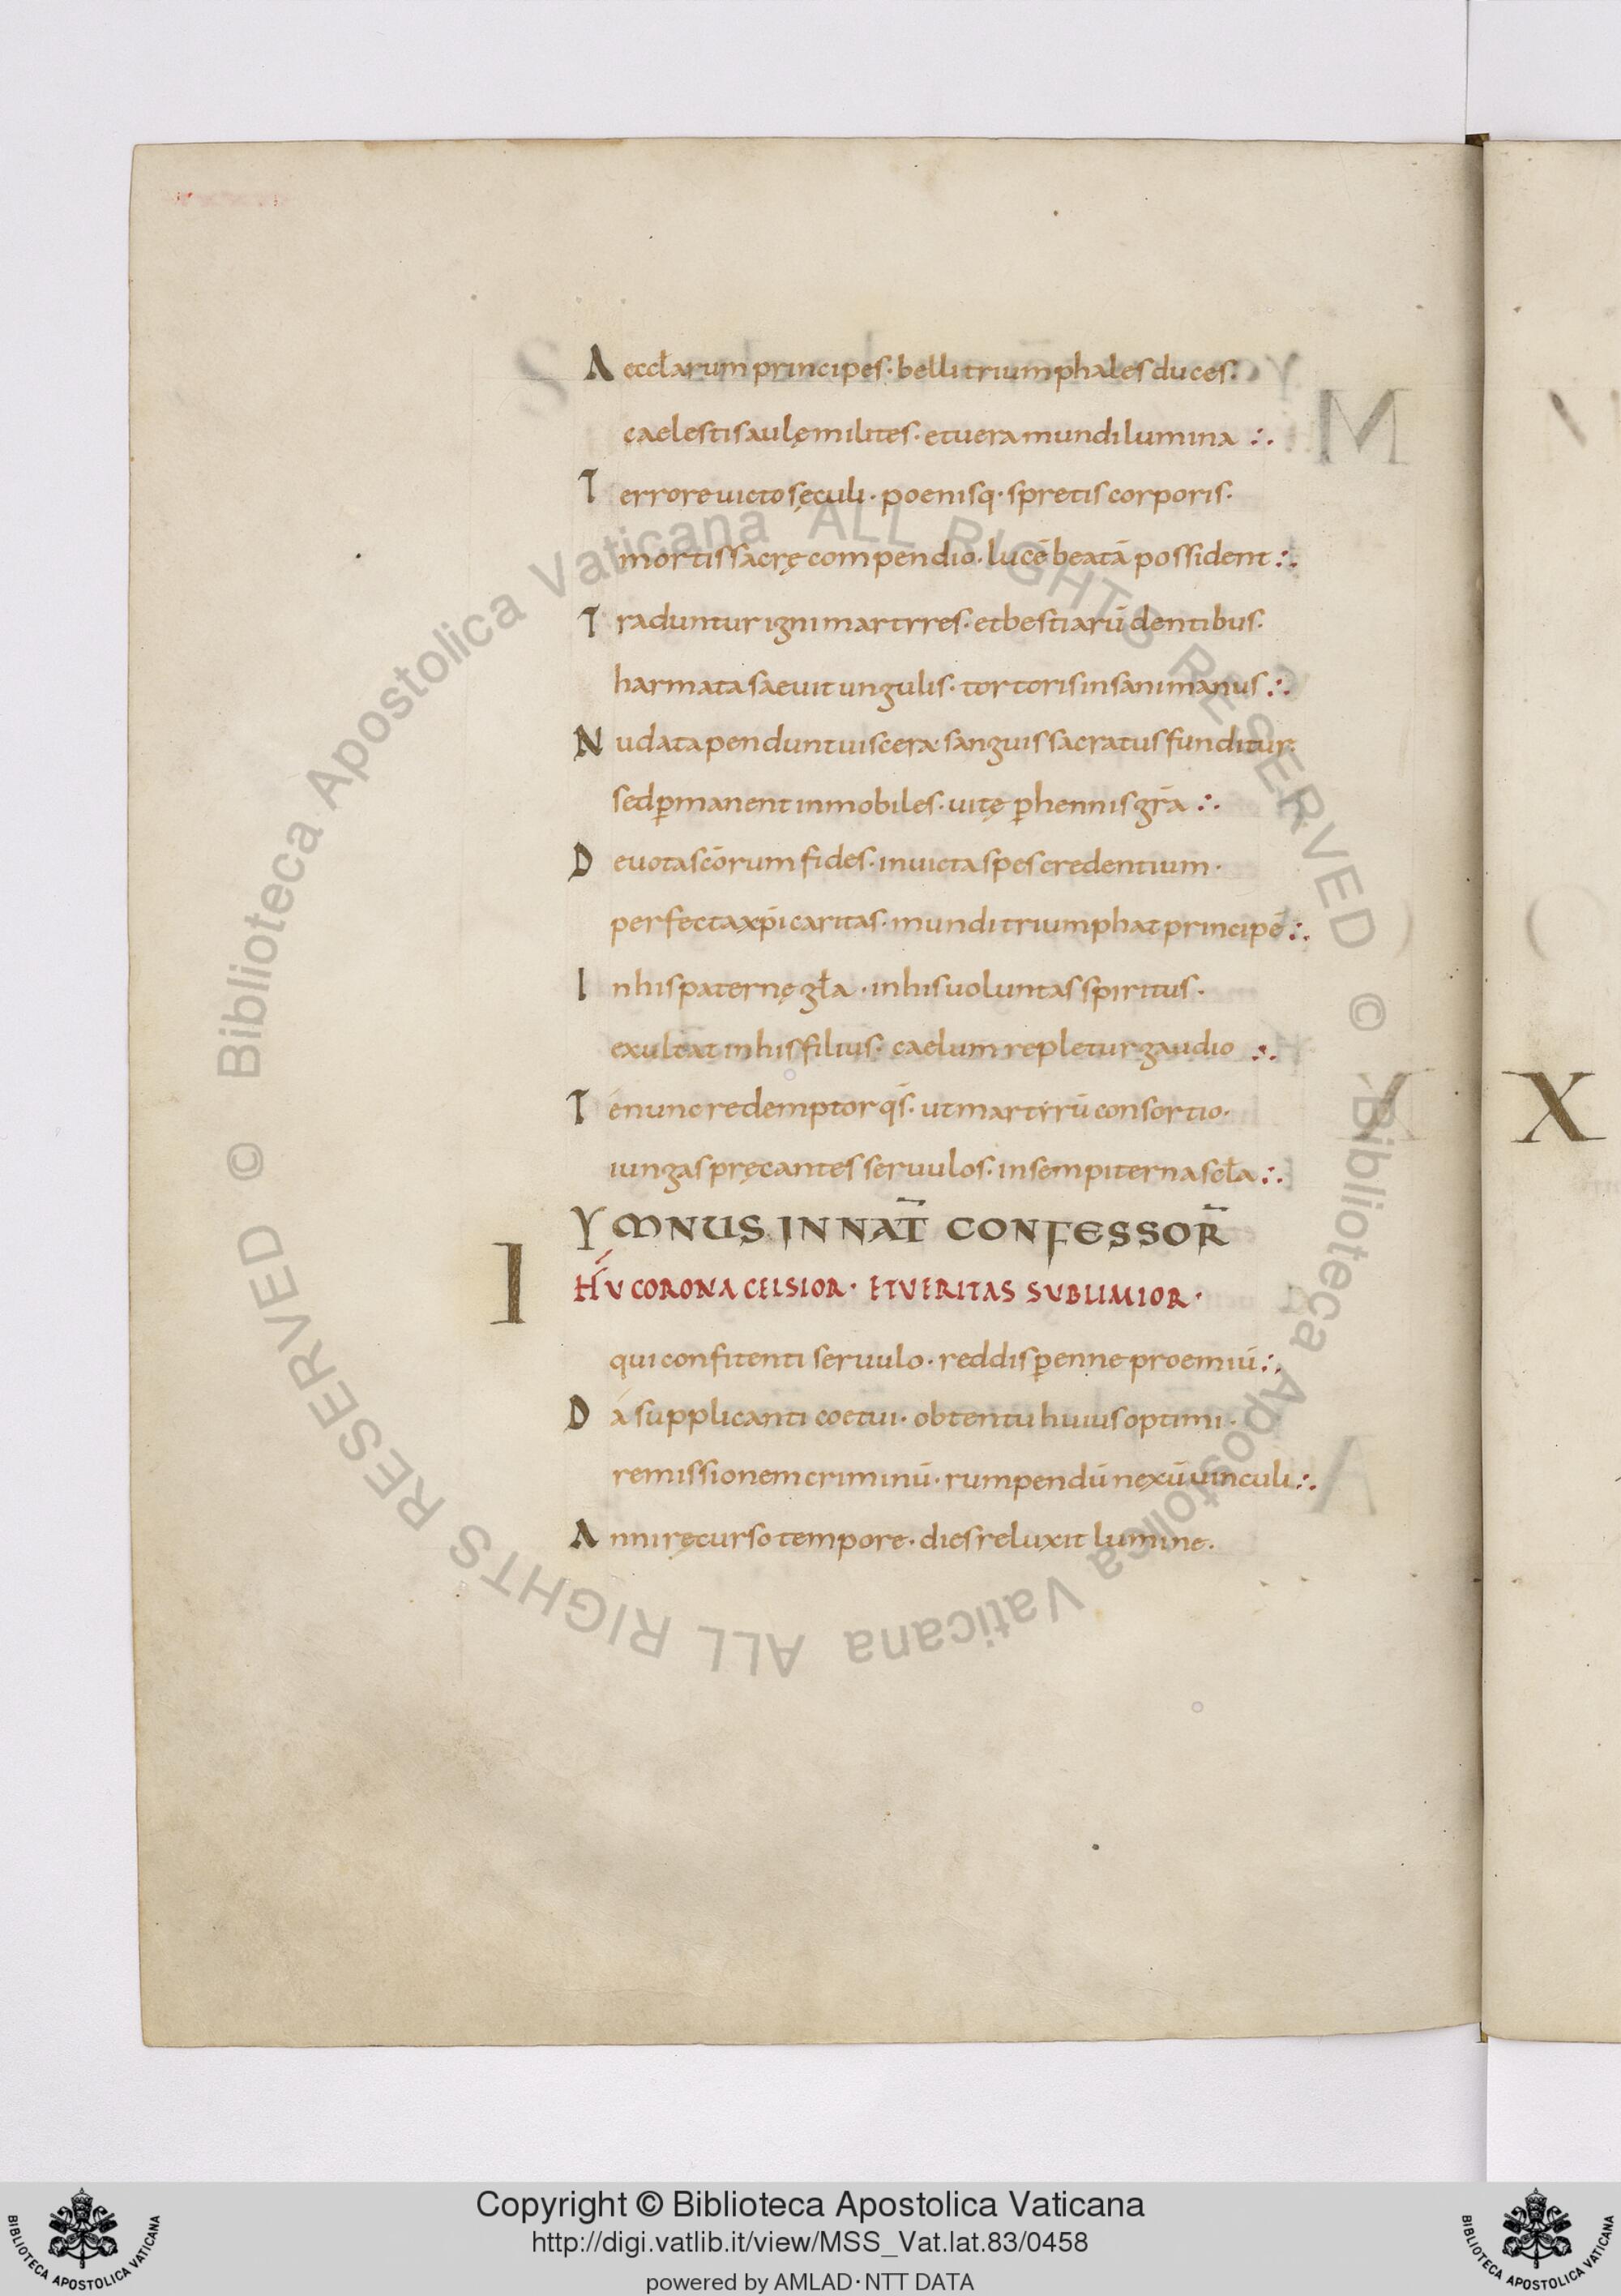 A eccłarum principes · belli triumphales duces.
caelestis aulę milites · et uera mundi lumina :.
T errore uicto sęculi · poenisq· spretis corporis.
mortis sacrę compendio · lucē beatā possident :.
T raduntur igni martyres · et bestiarū dentibus.
harmata saeuit ungulis · tortoris insani manus :.
N udata pendunt uiscera · sanguis sacratus funditur.
sed p̄manent inmobiles · uitę p̄hennis gr̄a :.
D euota sc̄orum fides · inuicta spes credentium ·
perfecta xp̄i caritas · mundi triumphat principē :.
I n his paternę gła · in his uoluntas spiritus ·
exultat in his filius · caelum repletur gaudio :.
T é nunc redemptor qs̄ · ut martyrū consortio ·
iungas pręcantes seruulos · in sempiterna scła :.
YMNUS IN NAT̄ CONFESSOR̄
I H̄V CORONA CELSIOR · ET VERITAS SVBLIMIOR ·
qui confitenti seruulo · reddis p̄enne proemiū :.
D á supplicanti coetui · obtentu huius optimi ·
remissionem criminū · rumpendū nexū uinculi :.
A nni ręcurso tempore · dies reluxit lumine.
X
© Biblioteca Apostolica Vaticana ALL RIGHTS RESERVED
© Biblioteca Apostolica Vaticana ALL RIGHTS RESERVED
Copyright © Biblioteca Apostolica Vaticana
http://digi.vatlib.it/view/MSS_Vat.lat.83/0458
powered by AMLAD·NTT DATA
BIBLIOTECA APOSTOLICA VATICANA
BIBLIOTECA APOSTOLICA VATICANA